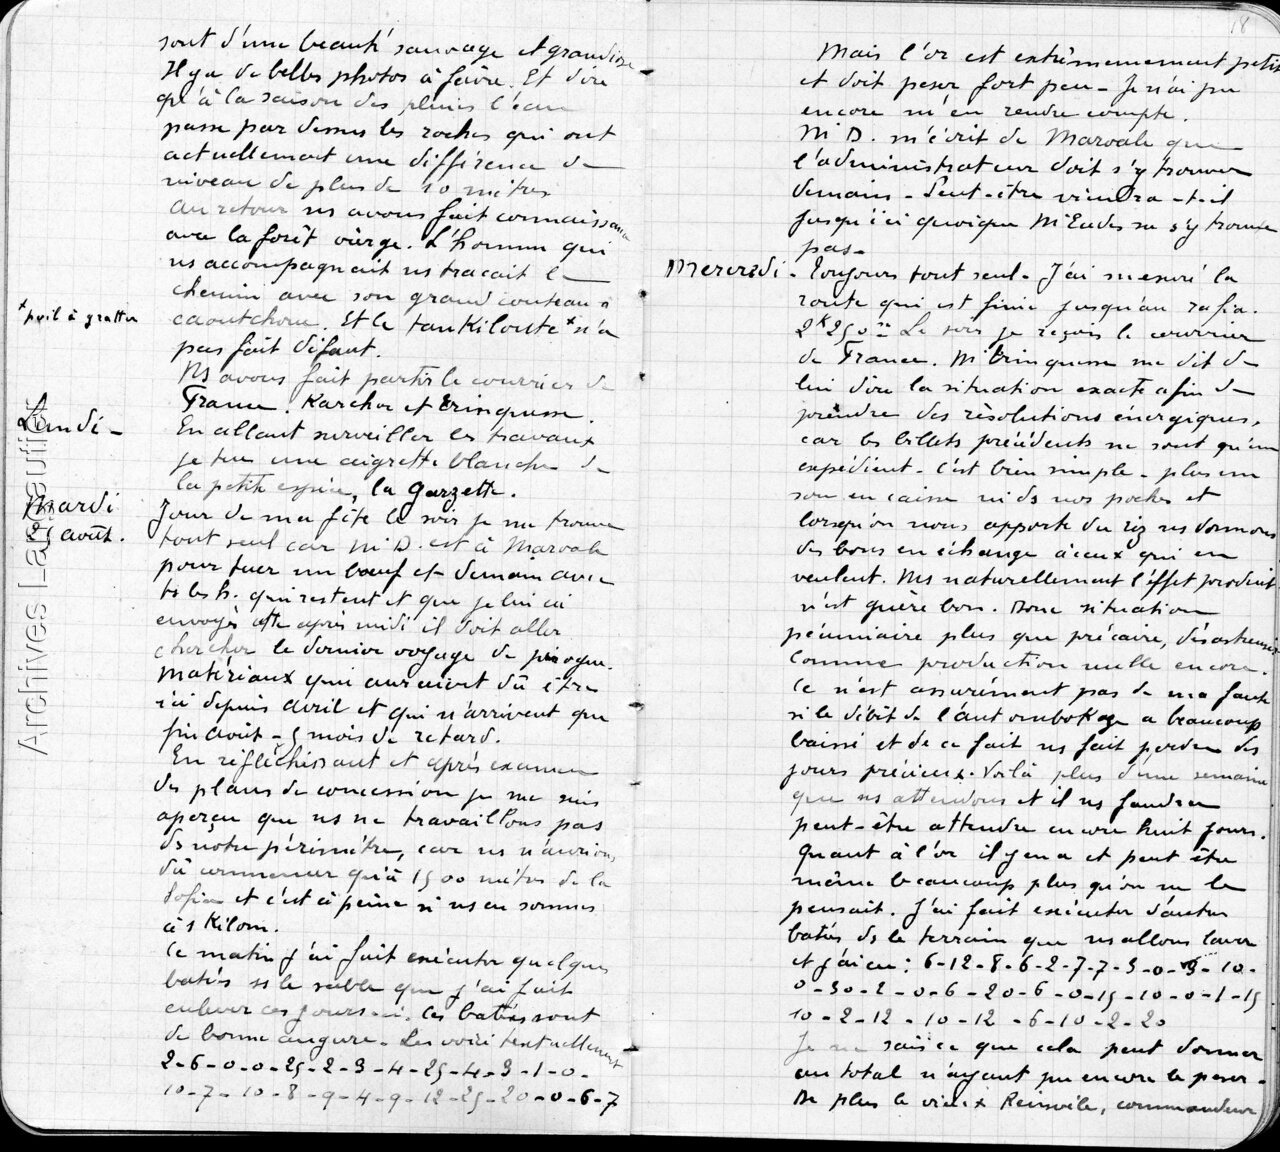 sont d'une beauté sauvage et grandiose
Il y a de belles photos à faire. Et dire
qu'à la saison des pluies l'eau
passe par dessus les roches qui ont
actuellement une différence de
niveau de plus de 10 mètres
Au retour ns avons fait connaissance
avec la forêt vierge. L'homme qui
ns accompagnait ns traçait le
chemin avec son grand couteau à
*poil à gratter
caoutchouc. Et le tankilouste* n'a
pas fait défaut.
Ns avons fait partir le courrier de
France. Karcher et Brinqusse
Lundi -
En allant surveiller les travaux
je tue une aigrette blanche de
la petite espèce, la Garzette.
Mardi
25 août.
Jour de ma fête le soir je me trouve
tout seul car M D. est à Maroale
pour tuer un bœuf et demain avec
ts les h. qui restent et que je lui ai
envoyés cette après midi il doit aller
chercher le dernier voyage de pirogue.
Matériaux qui auraient dû être
ici depuis avril et qui n'arrivent que
fin août - 5 mois de retard.
En réfléchissant et après examen
des plans de concession je me suis
aperçu que ns ne travaillons pas
ds notre périmètre, car ns n'aurions
dû commencer qu'à 1500 mètres de la
Sofia et c'est à peine si ns en sommes
à 1 Kilom.
Ce matin j'ai fait exécuter quelques
batées ds le sable que j'ai fait
enlever ces jours-ci. Ces batées sont
de bonne augure. Les voici textuellement
2-6-0-0-25-2-3-4-25-4-3-1-0-
10-7-10-8-9-4-9-12-25-20-0-6-7
18
Mais l'or est extrêmement petit
et doit peser fort peu - Je n'ai pu
encore m'en rendre compte.
M D. m'écrit de Maroale que
l'administrateur doit s'y trouver
demain - Peut-être viendra-t-il
jusqu'ici quoique M Eudes ne s'y trouve
pas -
Mercredi - Toujours tout seul. J'ai mesuré la
route qui est finie jusqu'au rafia.
2K250m Le soir je reçois le courrier
de France. M Brinqusse me dit de
lui dire la situation exacte afin de
prendre des résolutions énergiques,
car les billets précédents ne sont qu'un
expédient. C'est bien simple - plus un
sou en caisse ni ds nos poches et
lorsqu'on nous apporte du riz ns donnons
des bons en échange à ceux qui en
veulent. Mais naturellement l'effet produit
n'est guère bon. Donc situation
pécuniaire plus que précaire, désastreuse
Comme production nulle encore.
Ce n'est assurément pas de ma faute
si le débit de l'Antsombokage a beaucoup
baissé et de ce fait ns fait perdre des
jours précieux. Voilà plus d'une semaine
que ns attendons et il ns faudra
peut-être attendre encore huit jours.
Quant à l'or il y en a et peut être
même beaucoup plus qu'on ne le
pensait. J'ai fait exécuter d'autres
batées ds le terrain que ns allons laver
et j'ai eu : 6-12-8-6-2-7-7-3-0-3-10-
0-30-2-0-6-20-6-0-15-10-0-1-15
10-2-12-10-12-6-10-2-20
Je ne sais ce que cela peut donner
au total n'ayant pu encore le peser -
De plus le vieux Reinvile, commandeur
Archives